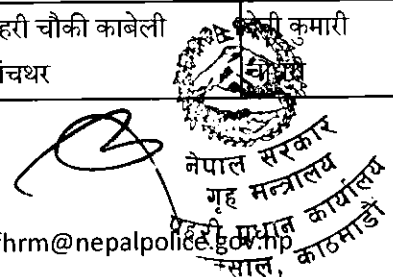 हरी चौकी काबेली
देवी कुमारी
चथर
चौधरी
नेपाल सरकार
गृह मन्त्रालय
प्रहरी प्रधान कार्यालय
साल, काठमाडौं
hrm@nepalpolice.gov.np